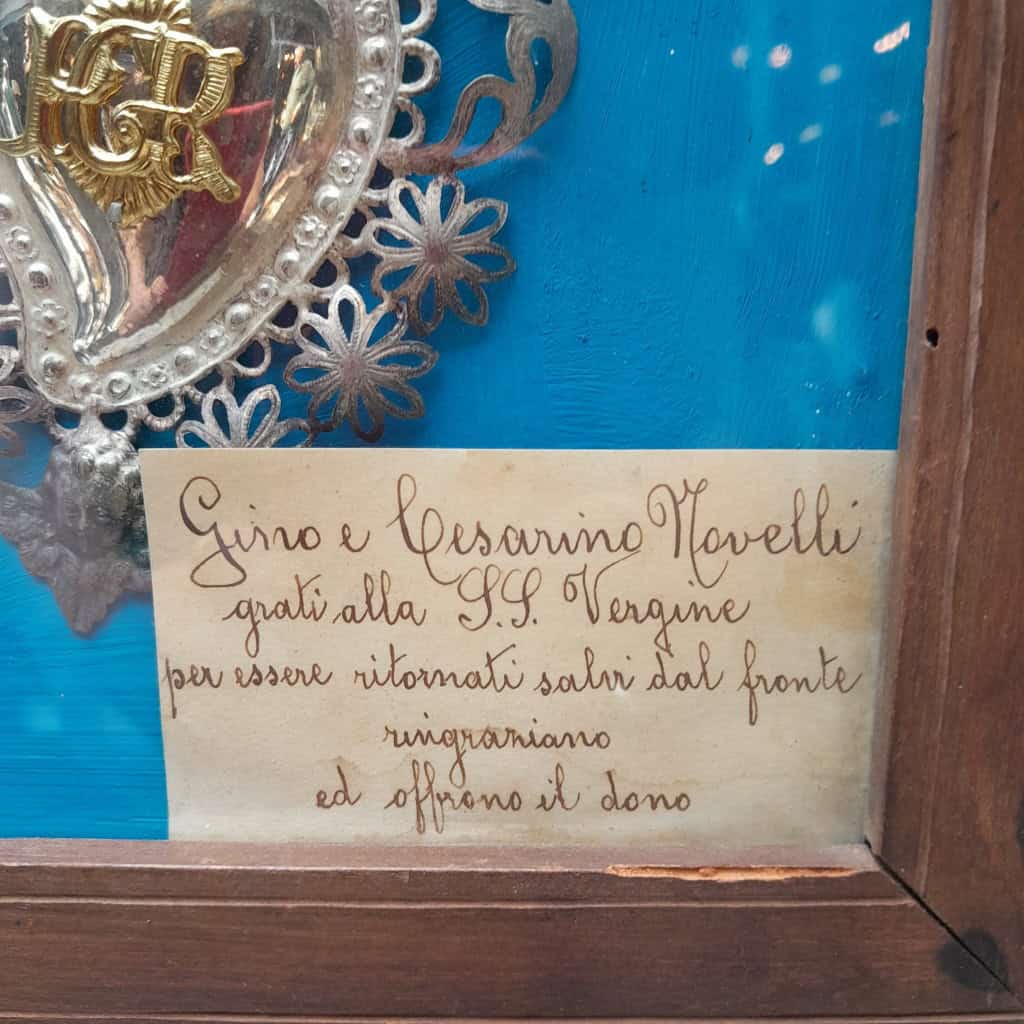 GR
Gino e Cesarino Novelli
grati alla S.S. Vergine
per essere ritornati salvi dal fronte
ringraziano
ed offrono il dono